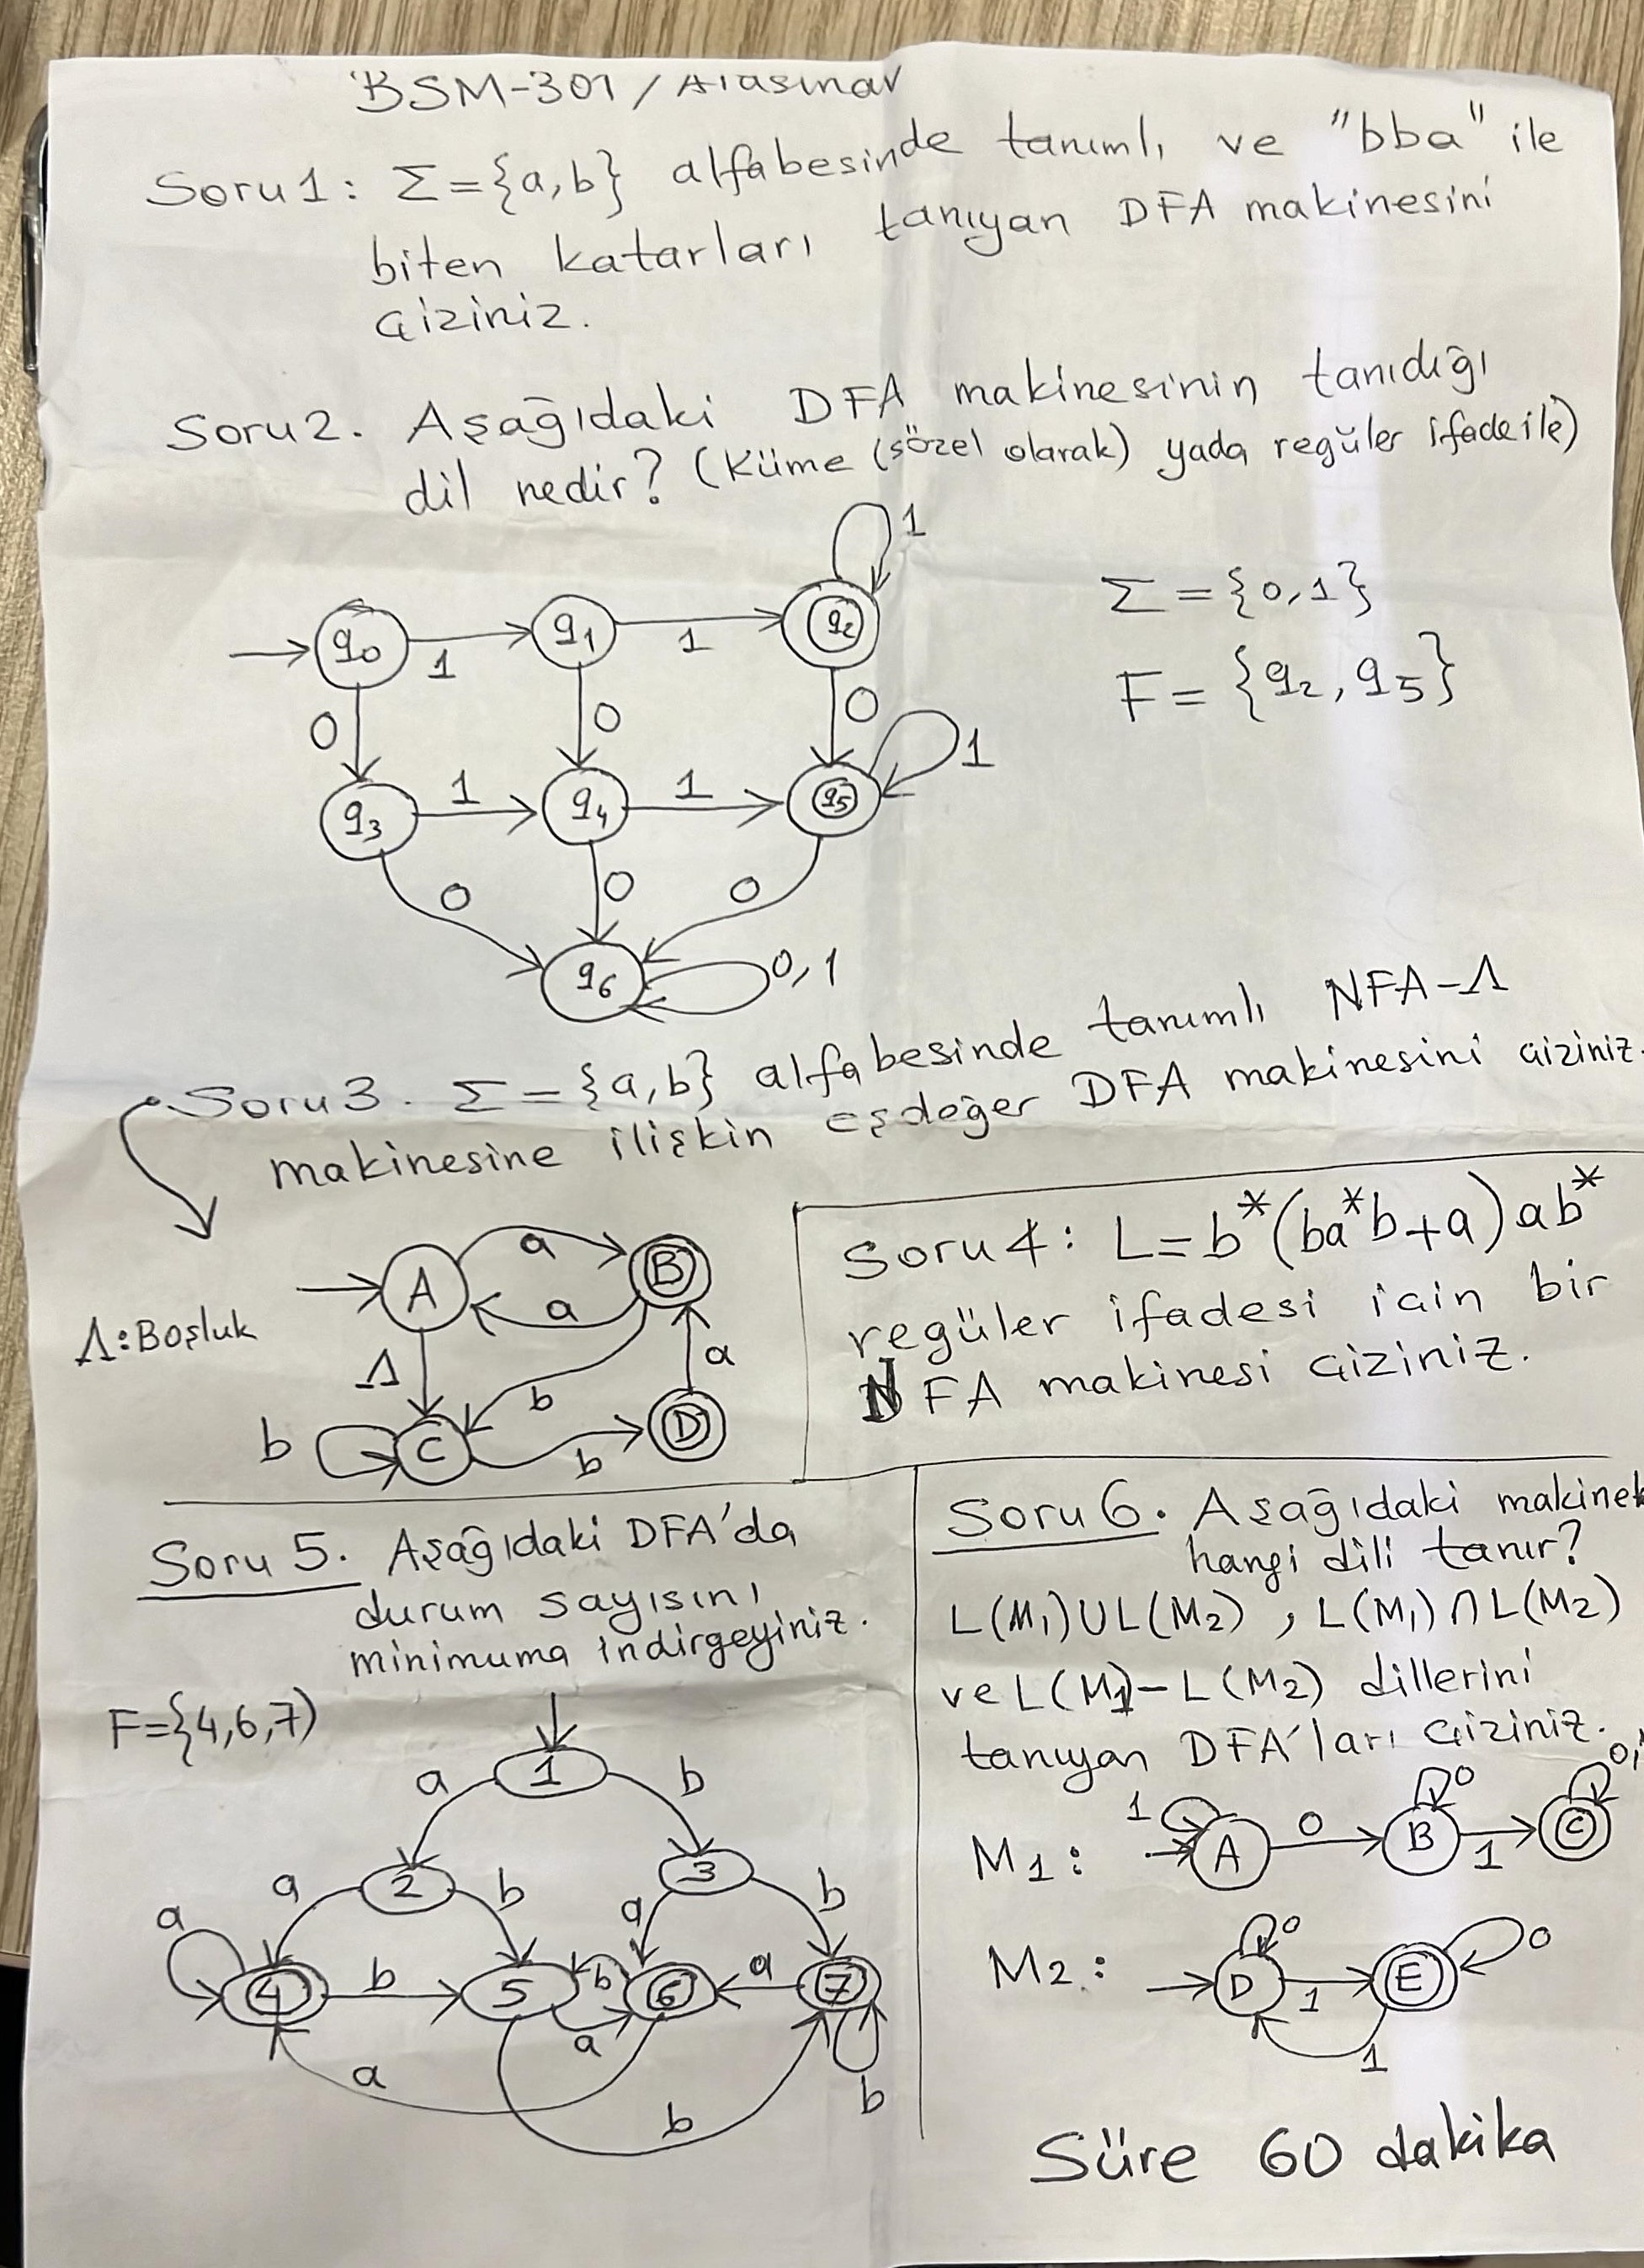 BSM-301 / Arasınav
Soru 1: Σ={a,b} alfabesinde tanımlı ve "bba" ile
biten katarları tanıyan DFA makinesini
çiziniz.
Soru 2. Aşağıdaki DFA makinesinin tanıdığı
dil nedir? (Küme (sözel olarak) yada regüler ifade ile)
1
q0 1 q1 1 q2
Σ={0,1}
F={q2,q5}
0 0 0 1
q3 1 q4 1 q5
0 0 0
q6 0,1
Soru 3. Σ={a,b} alfabesinde tanımlı NFA-Λ
makinesine ilişkin eşdeğer DFA makinesini çiziniz.
A a B
a
Λ:Boşluk
Λ b a
b C b D
Soru 4: L=b*(ba*b+a)ab*
regüler ifadesi için bir
NFA makinesi çiziniz.
Soru 5. Aşağıdaki DFA'da
durum sayısını
minimuma indirgeyiniz.
F={4,6,7)
1
a b
2 3
a b a b
a
4 b 5 b 6 a 7
a
a b b
Soru 6. Aşağıdaki
hangi dili tanır?
L(M1)∪L(M2), L(M1)∩L(M2)
ve L(M1)-L(M2) dillerini
tanıyan DFA'ları çiziniz.
M1: 1 A 0 B 0 1 C 0,
M2: D 0 1 E 0
1
Süre 60 dakika